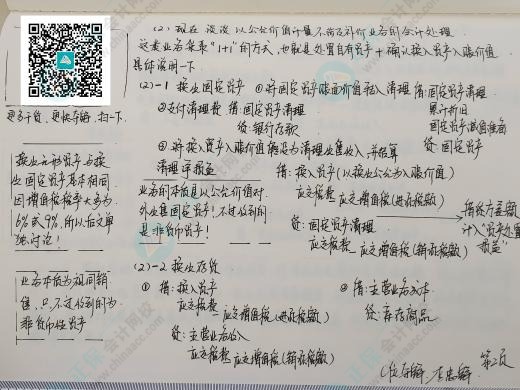 (2) 现在谈谈以公允价值计量不涉及补价业务的会计处理
这类业务采取"1+1"的方式,也就是处置自有资产+确认换入资产入账价值
具体说明一下.
更多干货,更快了解,扫一下
(2)-1 换出固定资产 ①将固定资产账面价值转入清理 借:固定资产清理
累计折旧
固定资产减值准备
贷:固定资产
②支付清理费 借:固定资产清理
贷:银行存款
③将换入资产入账价值确认为清理收入,并结算
清理净损益
借:换入资产(以换出公允为入账价值)
应交税费 应交增值税(进项税额)
贷:固定资产清理
应交税费 应交增值税(销项税额)
借贷方差额
计入"资产处置
损益"
换出无形资产与换
出固定资产基本相同
因增值税税率大多为
6%或9%,所以后文单
独讨论!
业务本质是以公允价值对
外出售固定资产!不过收到的
是非货币资产!
(2)-2 换出存货
① 借:换入资产
应交税费 应交增值税(进项税额)
贷:主营业务收入
应交税费 应交增值税(销项税额)
② 借:主营业务成本
贷:库存商品
业务本质为视同销
售,只不过收到的为
非货币性资产
第2页